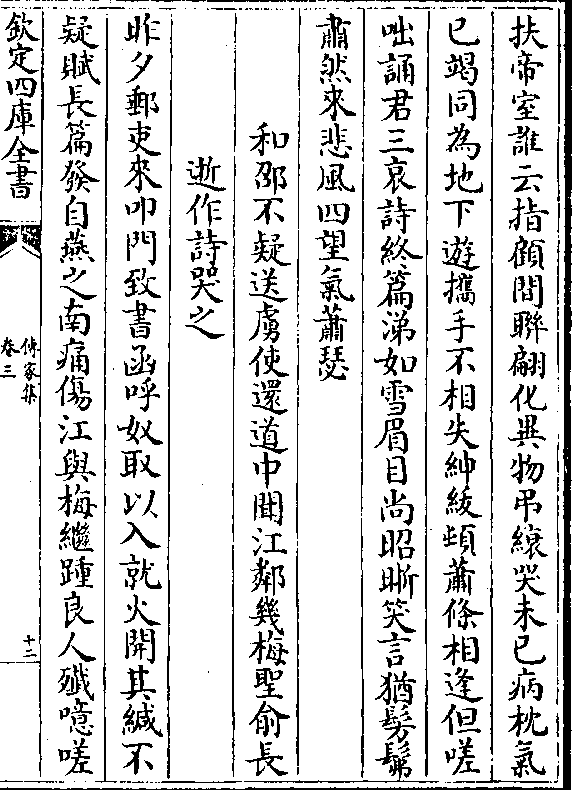 扶帝室誰云指顧間聯翩化異物弔縗哭未已病枕氣
已竭同為地下遊攜手不相失紳緌頓蕭條相逢但嗟
咄誦君三哀詩終篇涕如雪眉目尚昭晣笑言猶髣髴
肅然來悲風四望氣蕭瑟
和邵不疑送虜使還道中聞江鄰幾梅聖俞長
逝作詩哭之
昨夕郵吏來叩門致書函呼奴取以入就火開其緘不
疑賦長篇發自燕之南痛傷江與梅繼踵良人殲噫嗟
欽定四庫全書
傳家集
卷三
十二